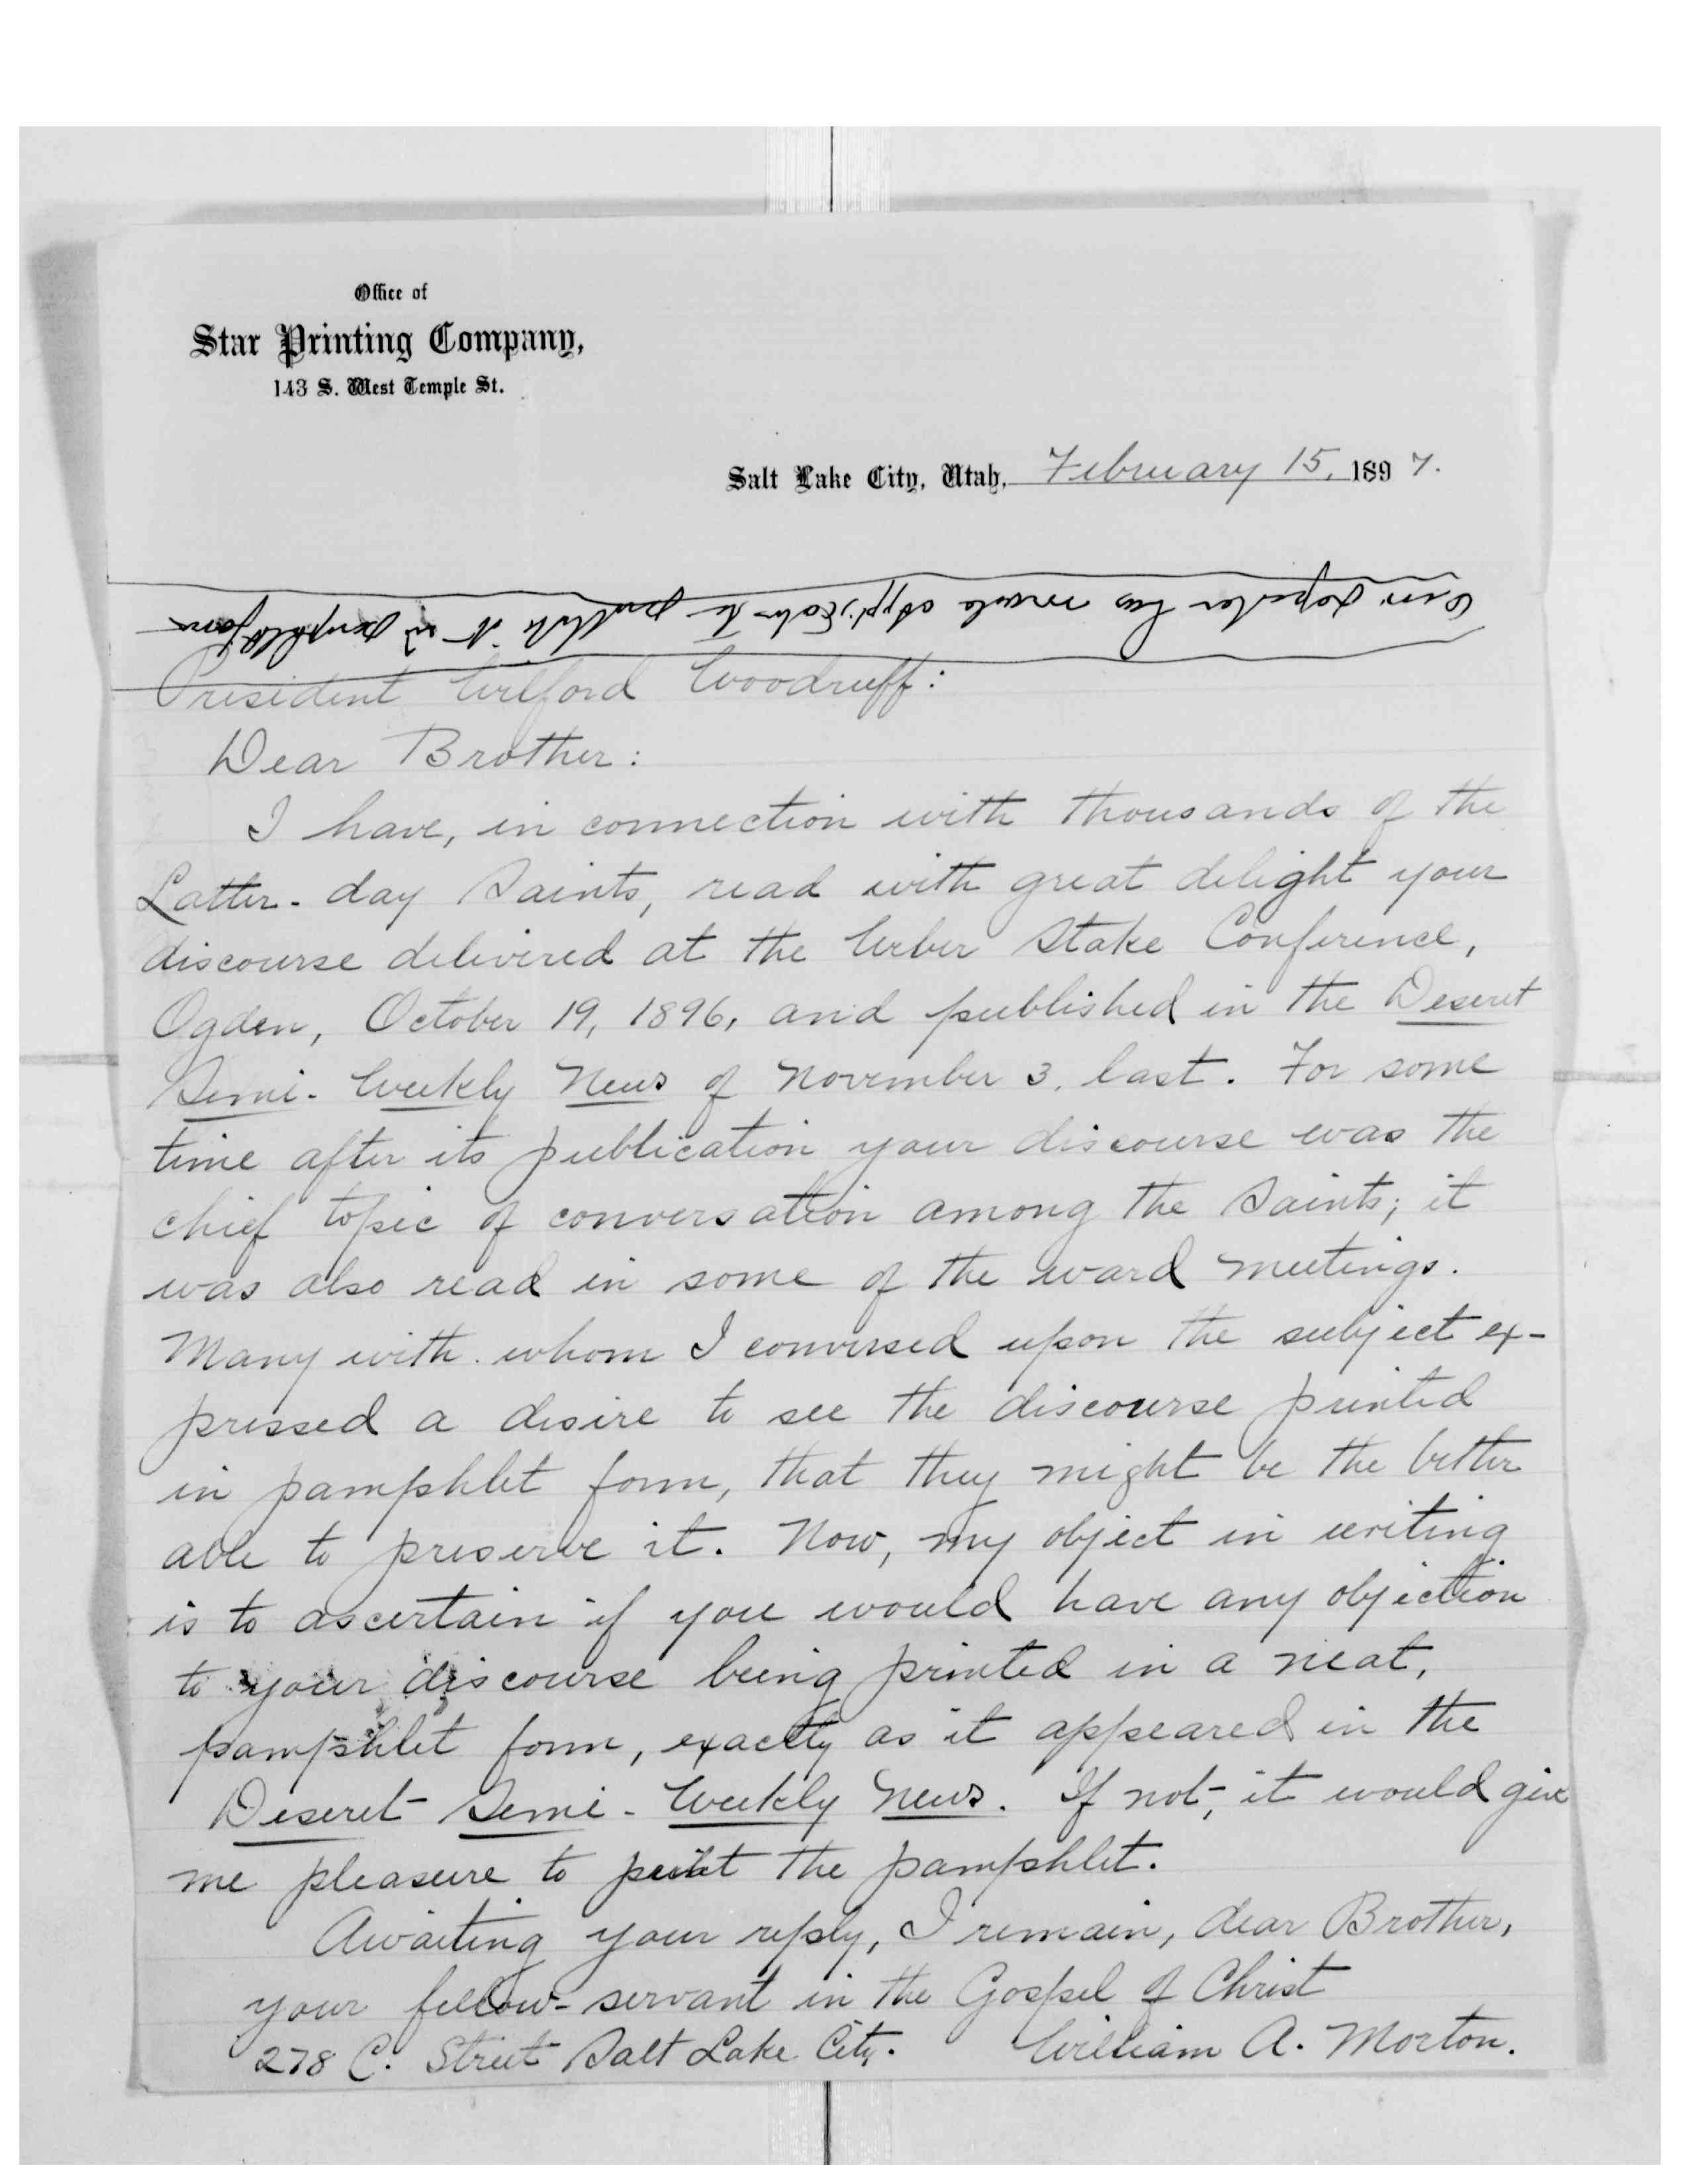 Office of
Star Printing Company,
143 S. West Temple St.
Salt Lake City, Utah, February 15, 1897.
has made application to publish it in pamphlet form
President Wilford Woodruff:
Dear Brother:
I have, in connection with thousands of the
Latter-day Saints, read with great delight your
discourse delivered at the Weber Stake Conference,
Ogden, October 19, 1896, and published in the Deseret
Semi-Weekly News of November 3, last. For some
time after its publication your discourse was the
chief topic of conversation among the Saints; it
was also read in some of the ward meetings.
Many with whom I conversed upon the subject ex-
pressed a desire to see the discourse printed
in pamphlet form, that they might be the better
able to preserve it. Now, my object in writing
is to ascertain if you would have any objection
to your discourse being printed in a neat,
pamphlet form, exactly as it appeared in the
Deseret Semi-Weekly News. If not, it would give
me pleasure to print the pamphlet.
Awaiting your reply, I remain, dear Brother,
your fellow-servant in the Gospel of Christ
278 C. Street Salt Lake City. William A. Morton.